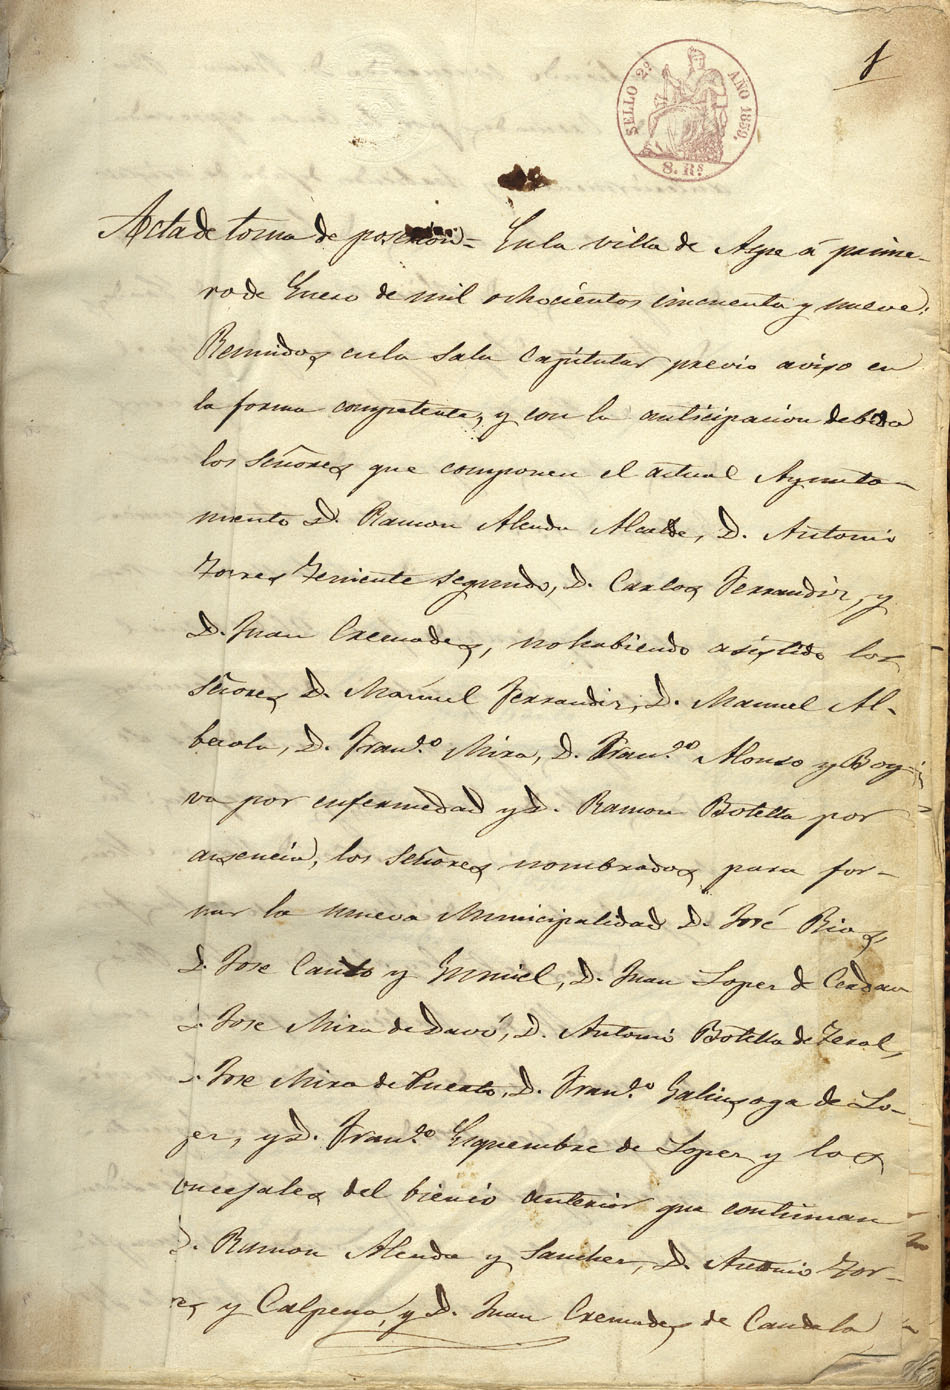 1
SELLO 2º AÑO 1859.
8. Rs
Acta de toma de posesion = En la villa de Aspe á prime-
ro de Enero de mil ochocientos cincuenta y nueve:
Reunidos en la Sala Capitular previo aviso en
la forma competente, y con la anticipacion debida
los Señores que componen el actual Ayunta-
miento D. Ramon Alenda Alcalde, D. Antonio
Torres Teniente segundo, D. Carlos Ferrandiz, y
D. Juan Cremades, no habiendo asistido los
Señores D. Manuel Ferrandiz, D. Manuel Al-
berola, D. Franco. Mira, D. Franco. Alonso y Boy-
va por enfermedad y D. Ramon Botella por
ausencia, los Señores nombrados para for-
mar la nueva Municipalidad D. José Rico,
D. Jose Canto y Urmiel, D. Juan Lopez de Cerdan
D. Jose Mira de Davó, D. Antonio Botella de Terol,
D. Jose Mira de Puerto, D. Franco. Galinsoga de Lo-
pez, y D. Franco. Esquembre de Lopez y los
concejales del bienio anterior que continuan
D. Ramon Alenda y Sanchez, D. Antonio Tor-
res y Calpena, y D. Juan Cremades de Candela